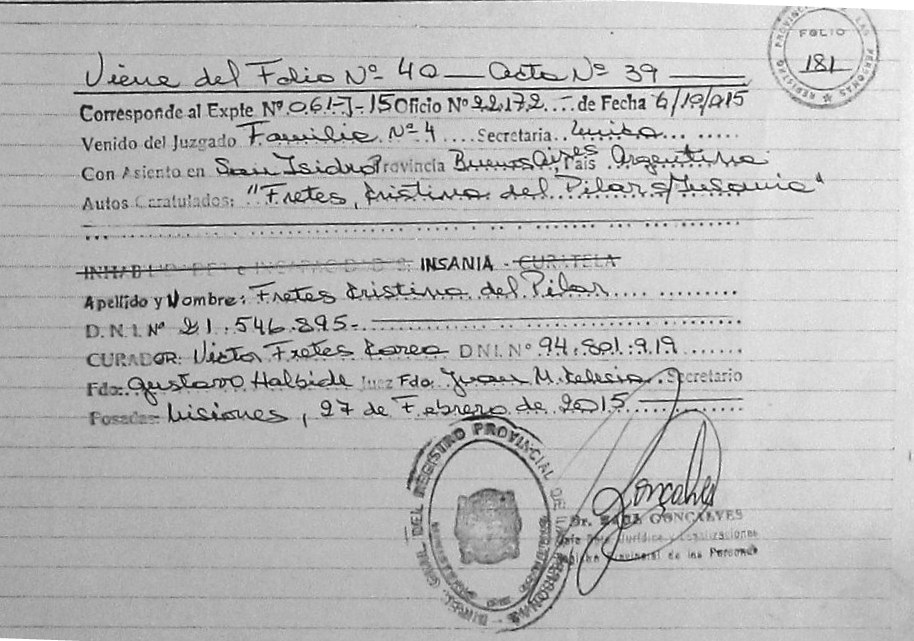 REGISTRO PROVINCIAL DE LAS PERSONAS
FOLIO
181
Viene del Folio Nº 40 — Acta Nº 39
Corresponde al Expte Nº 061-J-15 Oficio Nº 22.172 de Fecha 6/10/015
Venido del Juzgado Familia Nº 4 Secretaria Unica
Con Asiento en San Isidro Provincia Buenos Aires, Pais Argentina
Autos Caratulados: "Fretes, Kristina del Pilar s/Insania"
INSANIA - CURATELA
Apellido y Nombre: Fretes Kristina del Pilar
D.N.I. Nº 21.546.895-
CURADOR: Victor Fretes Korea DNI.Nº 94.801.919
Fdo: Gustavo Halbide Juez Fdo. Juan M. Secretario
Posadas Misiones, 27 de Febrero de 2015
Gonçalves
Dr. GONCALVES
Jurídica y Legalizaciones
Provincial de las Personas
DEL REGISTRO PROVINCIAL DE LAS PERSONAS